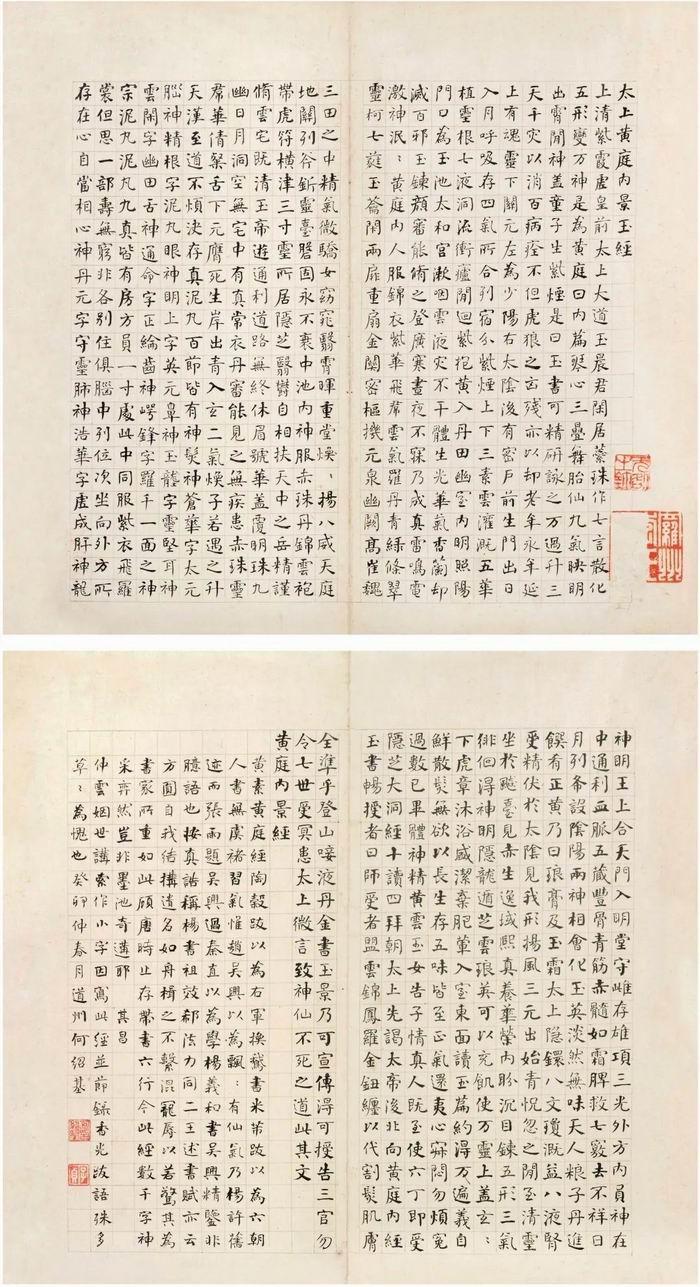 太上黄庭内景玉經
上清紫霞虛皇前太上大道玉晨君閑居蘂珠作七言散化
五形變万神是為黄庭曰内篇琴心三疊舞胎仙九氣映明
出霄閒神盖童子生紫煙是曰玉書可精研詠之万過升三
天千灾以消百病痊不但虎狼之凶殘亦以却老年永年延
上有魂靈下關元左為少陽右太陰後有密户前生門出日
入月呼吸存四氣所合列宿分紫煙上下三素雲灌溉五華
植靈根七液洞流衝廬閒迴紫抱黄入丹田幽室内明照陽
門口為玉池太和官漱咽靈液灾不干體生光華氣香蘭却
滅百邪玉鍊顔審能脩之登廣寒晝夜不寐乃成真雷鳴電
激神泯〻黄庭内人服錦衣紫華飛羣雲氣羅丹青緑條翠
靈柯七蕤玉籥閉兩扉重扇金關密樞機元泉幽闕髙崔巍
三田之中精氣微驕女窈窕翳霄暉重堂煥〻揚八威天庭
地關列谷斨靈臺盤固永不衰中池内神服赤珠丹錦雲袍
帶虎符横津三寸靈所居隱芝翳鬱自相扶天中之岳精謹
脩雲宅既清玉帝遊通利道路無終休眉號華盖覆明珠九
幽日月洞空無宅中有真常衣丹審能見之無疾患赤珠靈
帬華倩粲舌下元膺死生岸出青入玄二氣煥子若遇之升
天漢至道不煩決存真泥丸百節皆有神髮神蒼華字太元
腦神精根字泥丸眼神明上字英元鼻神玉壟字靈堅耳神
雲閒字幽田舌神通命字正綸齒神崿鋒字羅千一面之神
宗泥丸泥丸九真皆有房方員一寸處此中同服紫衣飛羅
裳但思一部壽無窮非各别住俱腦中列位次坐向外方所
存在心自當相心神丹元字守靈肺神浩華字虛成肝神龍
神明王上合天門入明堂守雌存雄項三光外方内員神在
中通利血脈五藏豐骨青筋赤髓如霜脾救七竅去不祥日
月列布設陰陽兩神相會化玉英淡然無味天人粮子丹進
饌肴正黄乃曰琅膏及玉霜太上隱鐶八文瓊溉益八液腎
受精伏於太陰見我形揚風三元出始青怳忽之閒至清靈
坐於飈臺見赤生逸域熙真養華榮内盼沉目鍊五形三氣
徘徊得神明隱龍遁芝雲琅英可以充飢使万靈上盖玄〻
下虎章沐浴盛潔棄肥葷入室東面讀玉篇約得万遍義自
鮮散髮無欲以長生存五味皆至正氣還夷心寂悶勿煩冤
過數已畢體神精黄雲玉女告子情真人既至使六丁即受
隱芝大洞經十讀四拜朝太上先謁太帝後北向黄庭内經
玉書暢授者曰師受者盟雲錦鳳羅金鈕纏以代割髮肌膚
全準乎登山唼液丹金書玉景乃可宣傳得可授告三官勿
令七世受冥患太上微言致神仙不死之道此其文
黄庭内景經
黄素黄庭經陶穀跋以為右軍換鵞書米芾跋以為六朝
人書無虞褚習氣惟趙吴興以為飄〻有仙氣乃楊許舊
迹而張雨題吴興過秦直以為學楊義和書吴興精鑒非
臆語也按真誥稱楊書祖效郗法力同二王述書賦亦云
方圓自我結構遺名如舟楫之不繫混寵辱以若驚其為
書家所重如此顧唐時止存帶書六行今此經數千字神
采弈然豈非墨池奇遘耶 其昌
仲雲姻世講索作小字因寫此經並節録香光跋語殊多
草〻為愧也癸卯仲春月道州何紹基